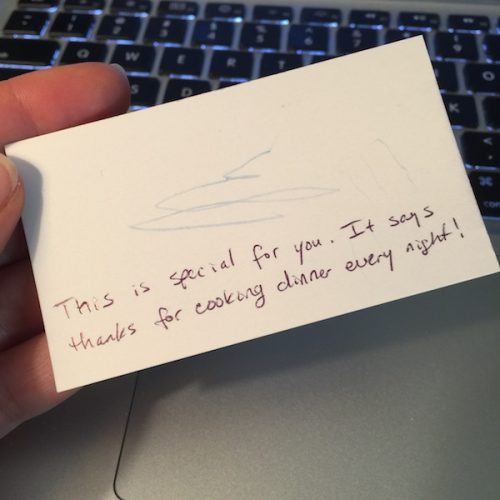 This is special for you. It says
thanks for cooking dinner every night!